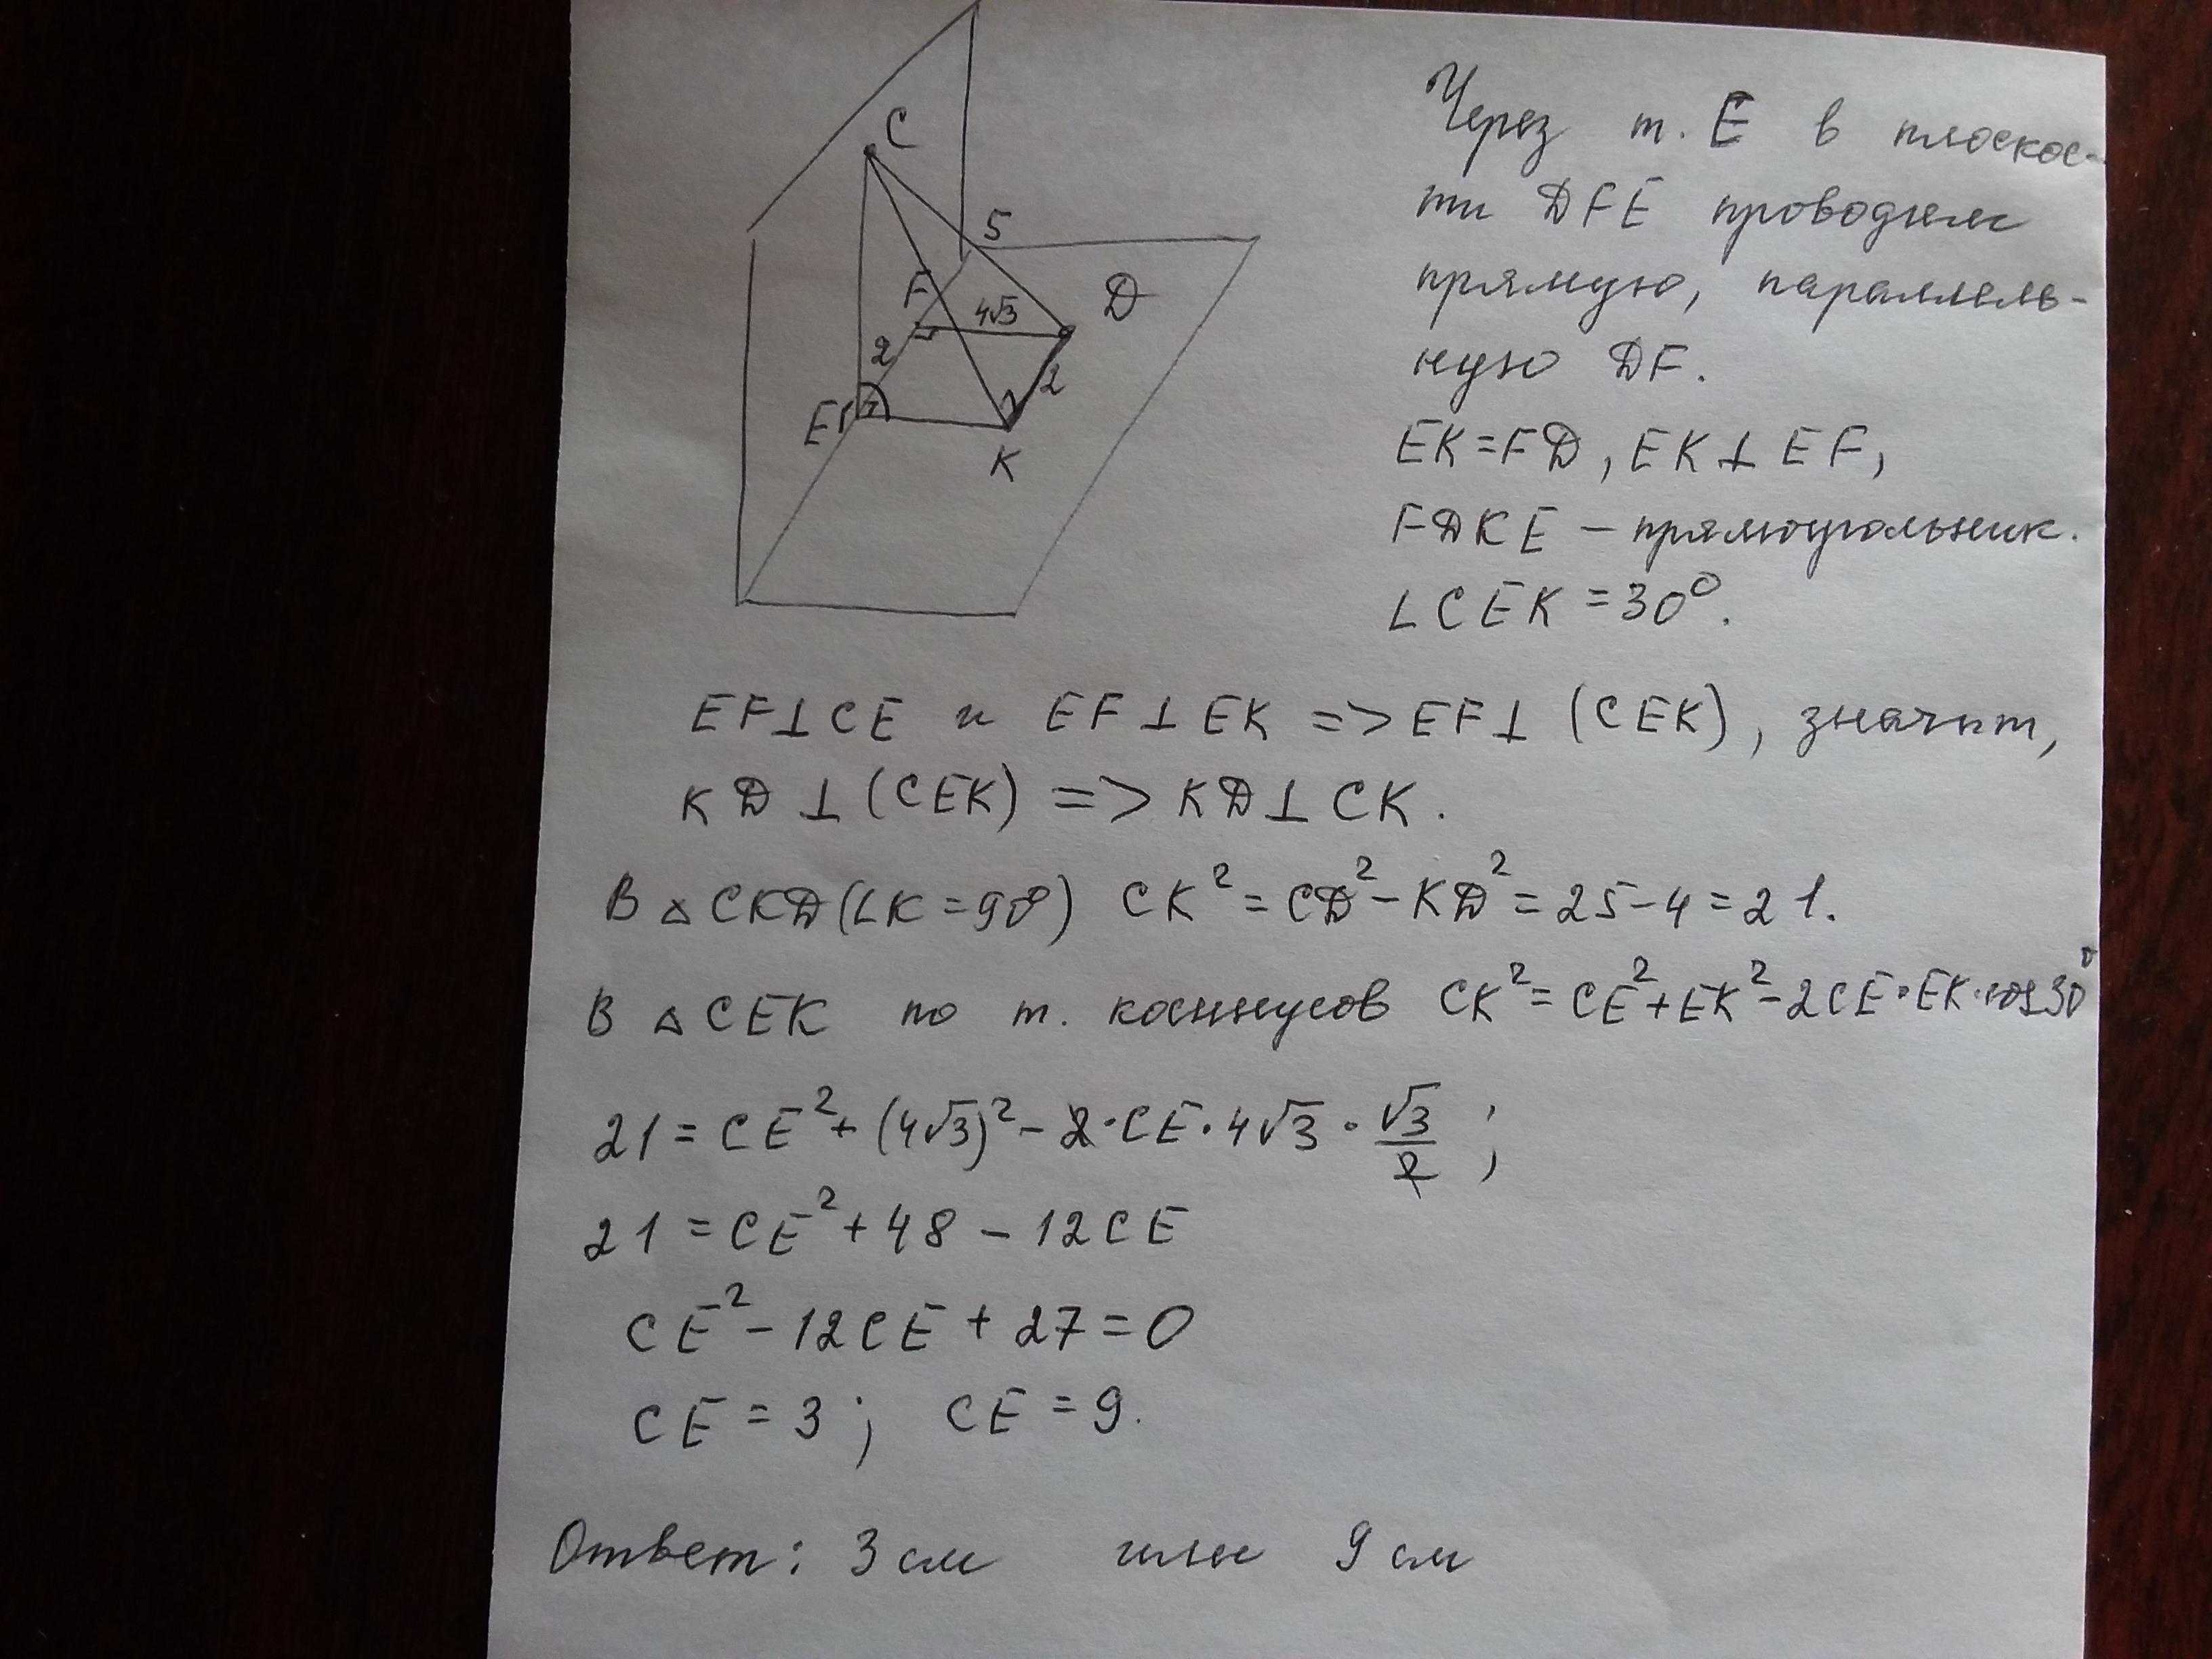 C
5
F
D
4√3
2
2
E
K
Через т. E в плоскос-
ти DFE проводим
прямую, параллель-
ную DF.
EK=FD, EK⊥EF,
FDKE – прямоугольник.
∠CEK=30°.
EF⊥CE и EF⊥EK => EF⊥(CEK), значит,
KD⊥(CEK) => KD⊥CK.
В △CKD(∠K=90°) CK²=CD²-KD²=25-4=21.
В △CEK по т. косинусов CK²=CE²+EK²-2CE·EK·cos30°
21=CE²+(4√3)²-2·CE·4√3·√3/2;
21=CE²+48-12CE
CE²-12CE+27=0
CE=3; CE=9.
Ответ: 3 см или 9 см